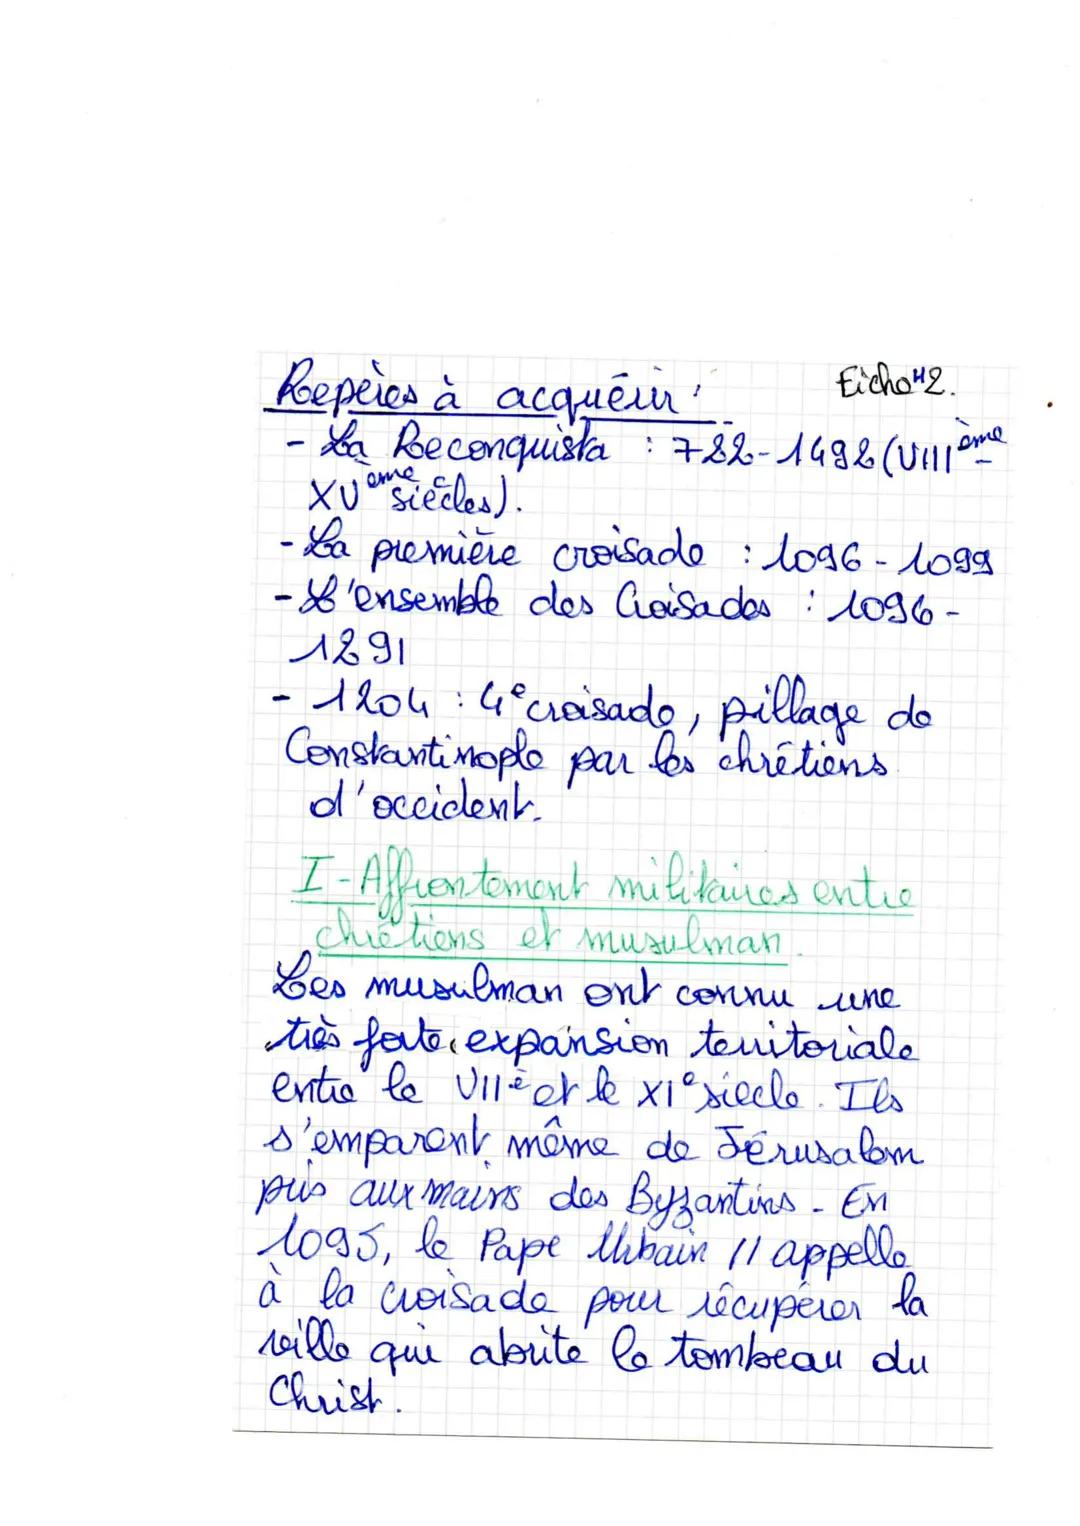 Repères à acquérir : Fiche n°2.
- La Reconquista : 722-1492 (VIIIème -
XVème siècles).
- La première croisade : 1096 - 1099
- L'ensemble des Croisades : 1096 -
1291
- 1204 : 4e croisade, pillage de
Constantinople par les chrétiens
d'occident.
I - Affrontement militaires entre
chrétiens et musulman.
Les musulman ont connu une
très forte expansion territoriale
entre le VIIe et le XIe siècle. Ils
s'emparent même de Jérusalem
puis aux mains des Byzantins. En
1095, le Pape Urbain II appelle
à la croisade pour récupérer la
ville qui abrite le tombeau du
Christ.